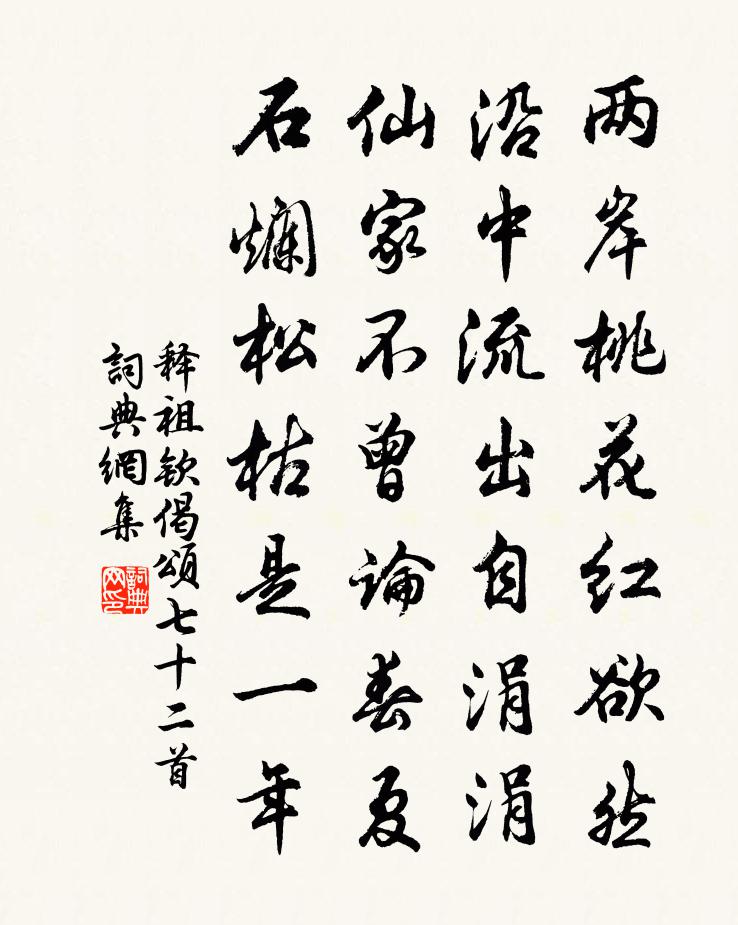 两岸桃花红欲然
沿中流出自涓涓
仙家不曾論春夏
石爛松枯是一年
释祖钦偈頌七十二首
詞典網集
詞典网印